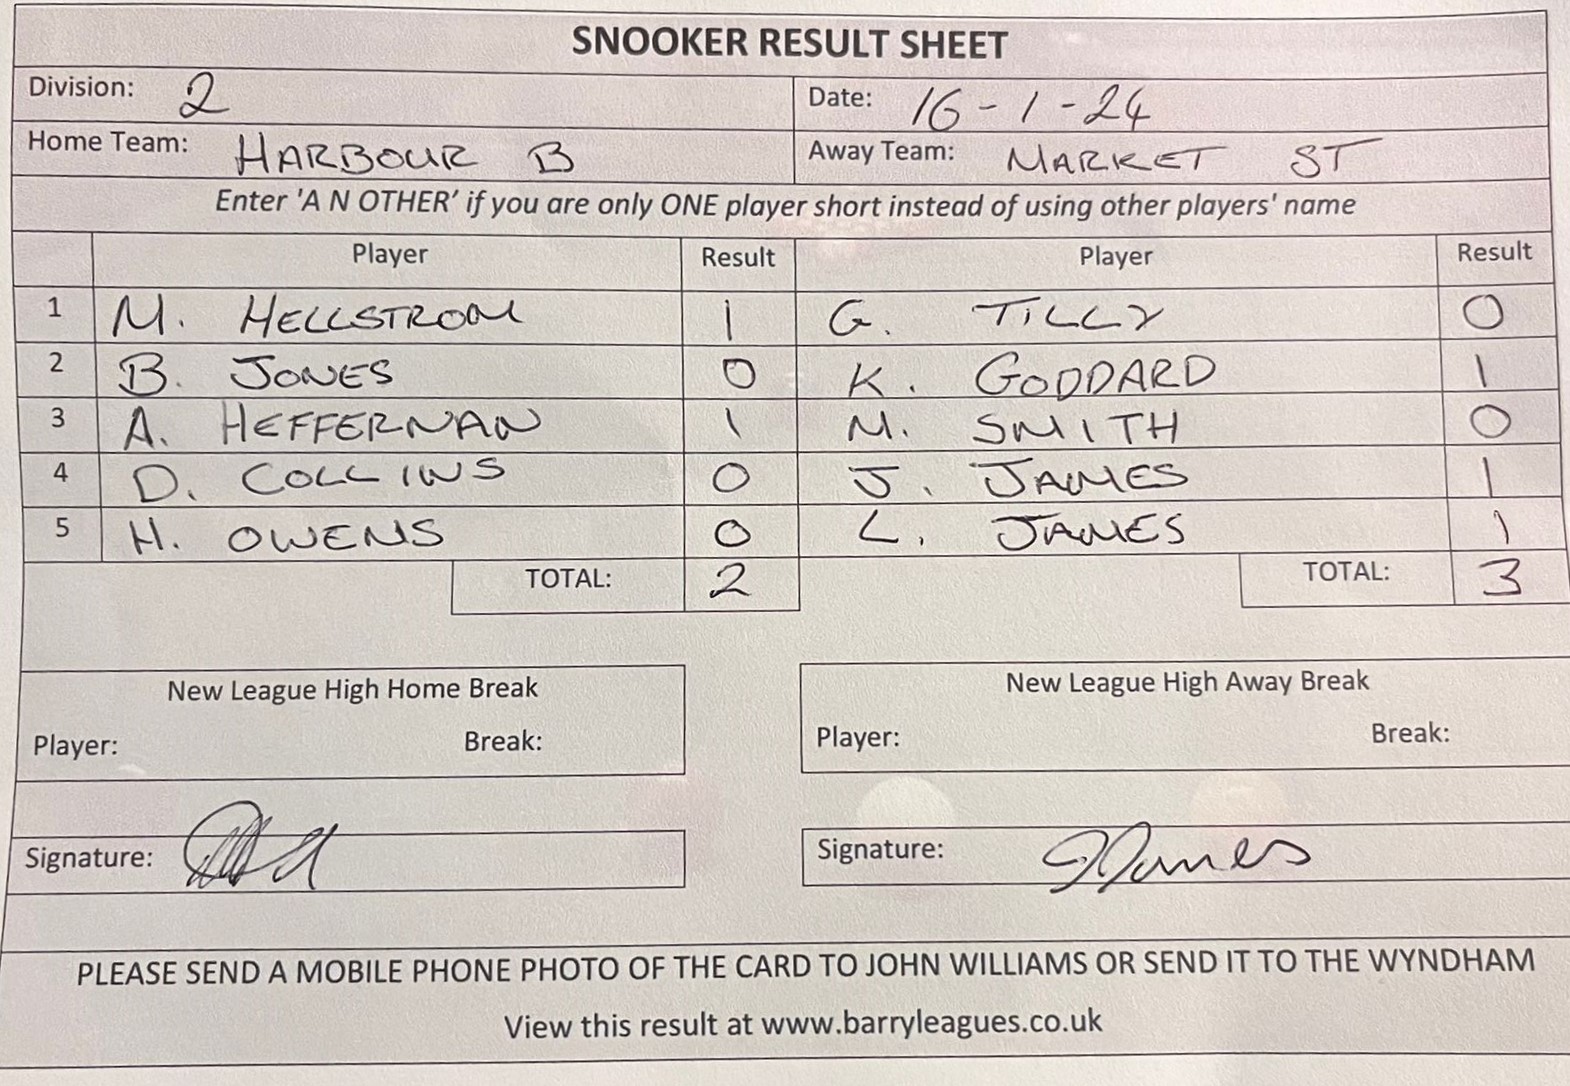 SNOOKER RESULT SHEET
Division: 2 Date: 16-1-24
Home Team: HARBOUR B Away Team: MARKET ST
Enter 'A N OTHER' if you are only ONE player short instead of using other players' name
Player Result Player Result
1 M. HELLSTROM 1 G. TILLY 0
2 B. JONES 0 K. GODDARD 1
3 A. HEFFERNAN 1 M. SMITH 0
4 D. COLLINS 0 J. JAMES 1
5 H. OWENS 0 L. JAMES 1
TOTAL: 2 TOTAL: 3
New League High Home Break New League High Away Break
Player: Break: Player: Break:
Signature: Signature: J James
PLEASE SEND A MOBILE PHONE PHOTO OF THE CARD TO JOHN WILLIAMS OR SEND IT TO THE WYNDHAM
View this result at www.barryleagues.co.uk